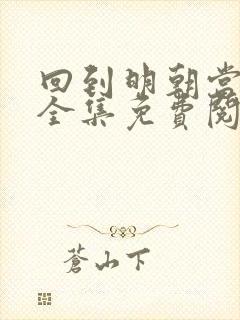 回到明朝当
全集免費閱
蒼山下